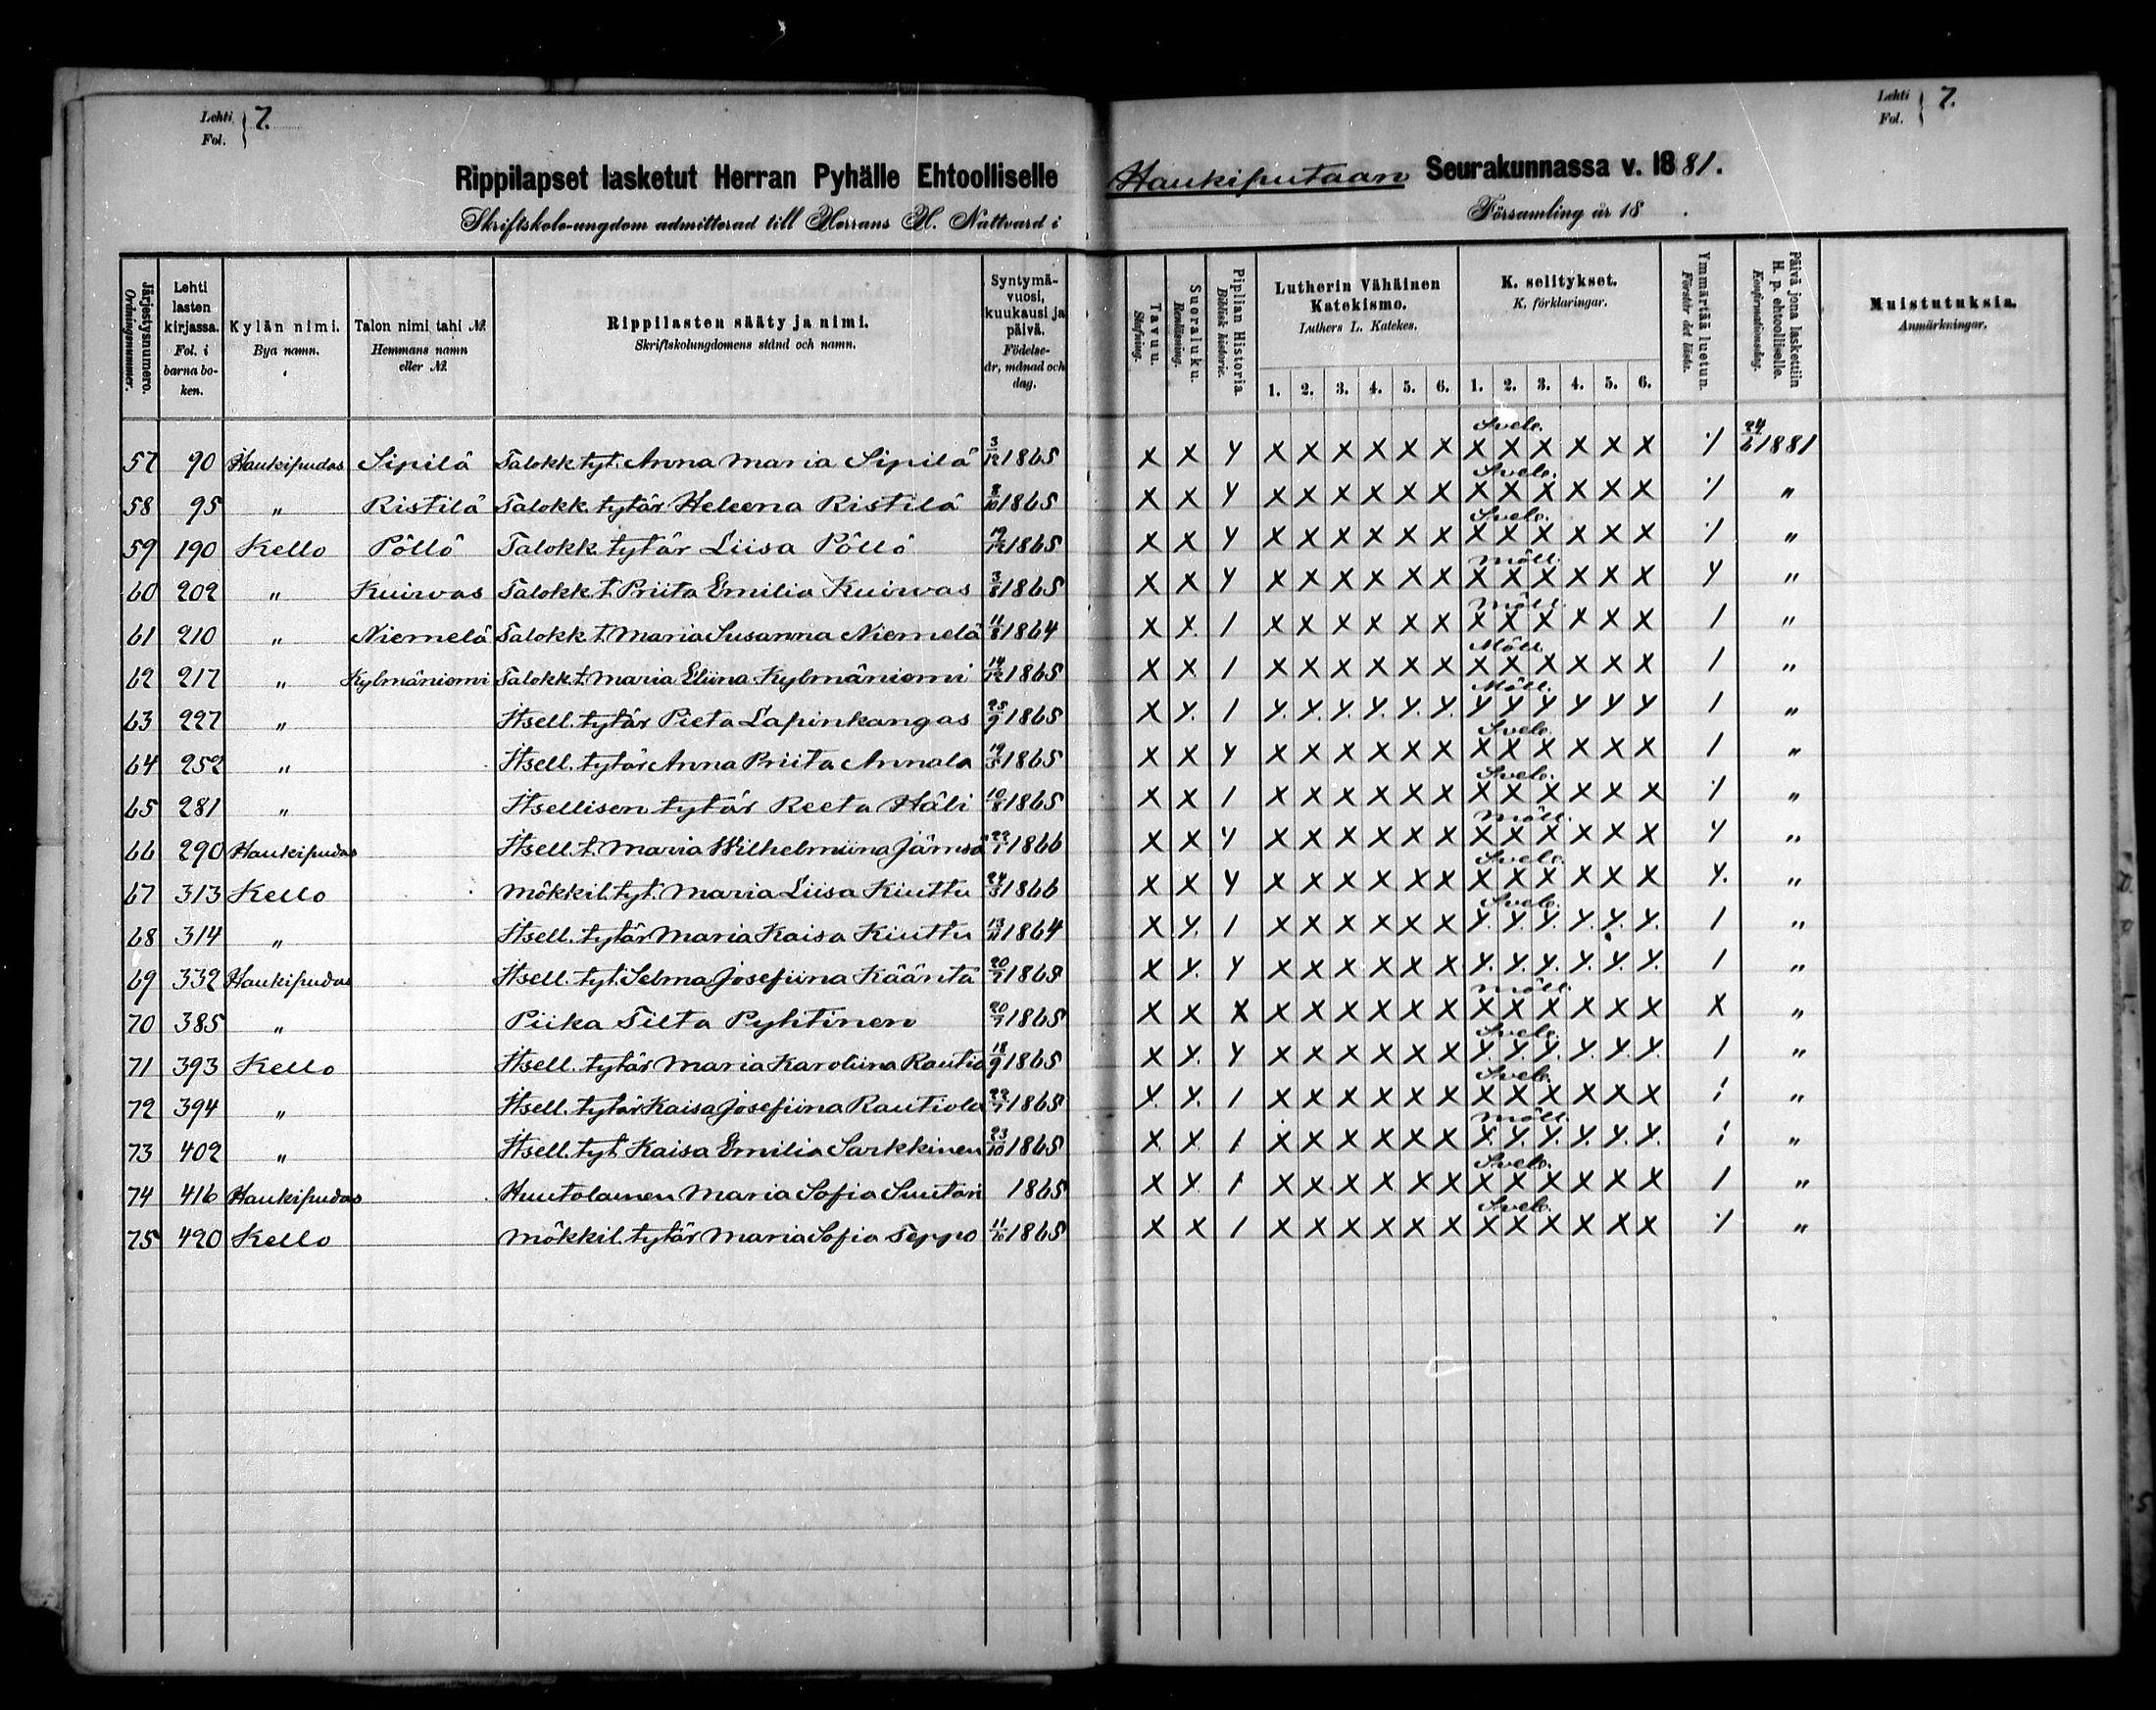 Lehti Fol. } 7.
Lehti Fol. } 7.
Rippilapset lasketut Herran Pyhälle Ehtoolliselle Haukiputaan Seurakunnassa v. 1881.
Skriftskole-ungdom admitterad till Herrans H. Nattvard i Församling år 18 .
Järjestysnumero. Ordningsnummer.
Lehti lasten kirjassa. Fol. i barna boken.
Kylän nimi. Bya namn.
Talon nimi tahi №. Hemmans namn eller №.
Rippilasten sääty ja nimi. Skriftskolungdomens stånd och namn.
Syntymävuosi, kuukausi ja päivä. Födelseår, månad och dag.
Tavuu. Stafning.
Suoraluku. Renläsning.
Piplian Historia. Biblisk historie.
Lutherin Vähäinen Katekismo. Luthers L. Katekes.
1. 2. 3. 4. 5. 6.
K. selitykset. K. förklaringar.
1. 2. 3. 4. 5. 6.
Ymmärtää luetun. Förstår det lästa.
Päivä jona laskettiin H. p. ehtoolliselle. Konfirmationsdag.
Muistutuksia. Anmärkningar.
57 90 Haukipudas Sipilä Talokk tyt. Anna Maria Sipilä 3/12 1865 x x y x x x x x x Sveb. x x x x x x ./ 24/6 1881
58 95 " Ristilä Talokk. tytär Heleena Ristilä 8/10 1865 x x y x x x x x x Sveb. x x x x x x ./ "
59 190 Kello Pöllö Talokk tytär Liisa Pöllö 1865 x x y x x x x x x Sveb. x x x x x x ./ "
60 202 " Kuiwas Talokk t. Priita Emilia Kuiwas 3/8 1865 x x y x x x x x x Möll. x x x x x x y "
61 210 " Niemelä Talokk t. Maria Susanna Niemelä 11/8 1864 x x 1 x x x x x x Möll. x x x x x x 1 "
62 217 " Kylmäniemi Talokk. t. Maria Eliina Kylmäniemi 14/12 1865 x x 1 x x x x x x Möll. x x x x x x 1 "
63 227 " Itsell. tytär Pieta Lapinkangas 25/9 1865 x y. 1 y. y. y. y. y. y. Möll. y y y y y y 1 "
64 252 " Itsell. tytär Anna Priita Annala 1865 x x y x x x x x x Sveb. x x x x x x 1 "
65 281 " Itsellisen tytär Reeta Häli 10/8 1865 x x 1 x x x x x x Sveb. x x x x x x ./ "
66 290 Haukipudas Itsell. t. Maria Wilhelmiina Jämsä 22/1 1866 x x y x x x x x x Möll. x x x x x x y "
67 313 Kello Mökkil. tyt. Maria Liisa Kiuttu 24/3 1866 x x y x x x x x x Sveb. x x x x x x y. "
68 314 " Itsell. tytär Maria Kaisa Kiuttu 13/11 1864 x y. 1 x x x x x x Sveb. y. y. y. y. y. y. 1 "
69 332 Haukipudas Itsell. tyt. Selma Josefiina Kääntä 20/7 1865 x y. y x x x x x x y. y. y. y. y. y. 1 "
70 385 " Piika Tilta Pyhtinen 20/7 1865 x x x x x x x x x Möll. x x x x x x x "
71 393 Kello Itsell. tytär Maria Karoliina Rautio 18/9 1865 x y. y x x x x x x Sveb. y. y. y. y. y. y. 1 "
72 394 " Itsell. tytär Kaisa Josefiina Rautiola 22/7 1865 y. y. 1 x x x x x x Sveb. x x x x x x 1 "
73 402 " Itsell. tyt Kaisa Emilia Sarkkinen 23/10 1865 x y. 1 x x x x x x Möll. y. y. y. y. y. y. 1 "
74 416 Haukipudas Huutolainen Maria Sofia Suutari 1865 x y. 1 x x x x x x Sveb. x x x x x x 1 "
75 420 Kello Mökkil. tytär Maria Sofia Seppo 11/10 1865 x x 1 x x x x x x Sveb. x x x x x x ./ "